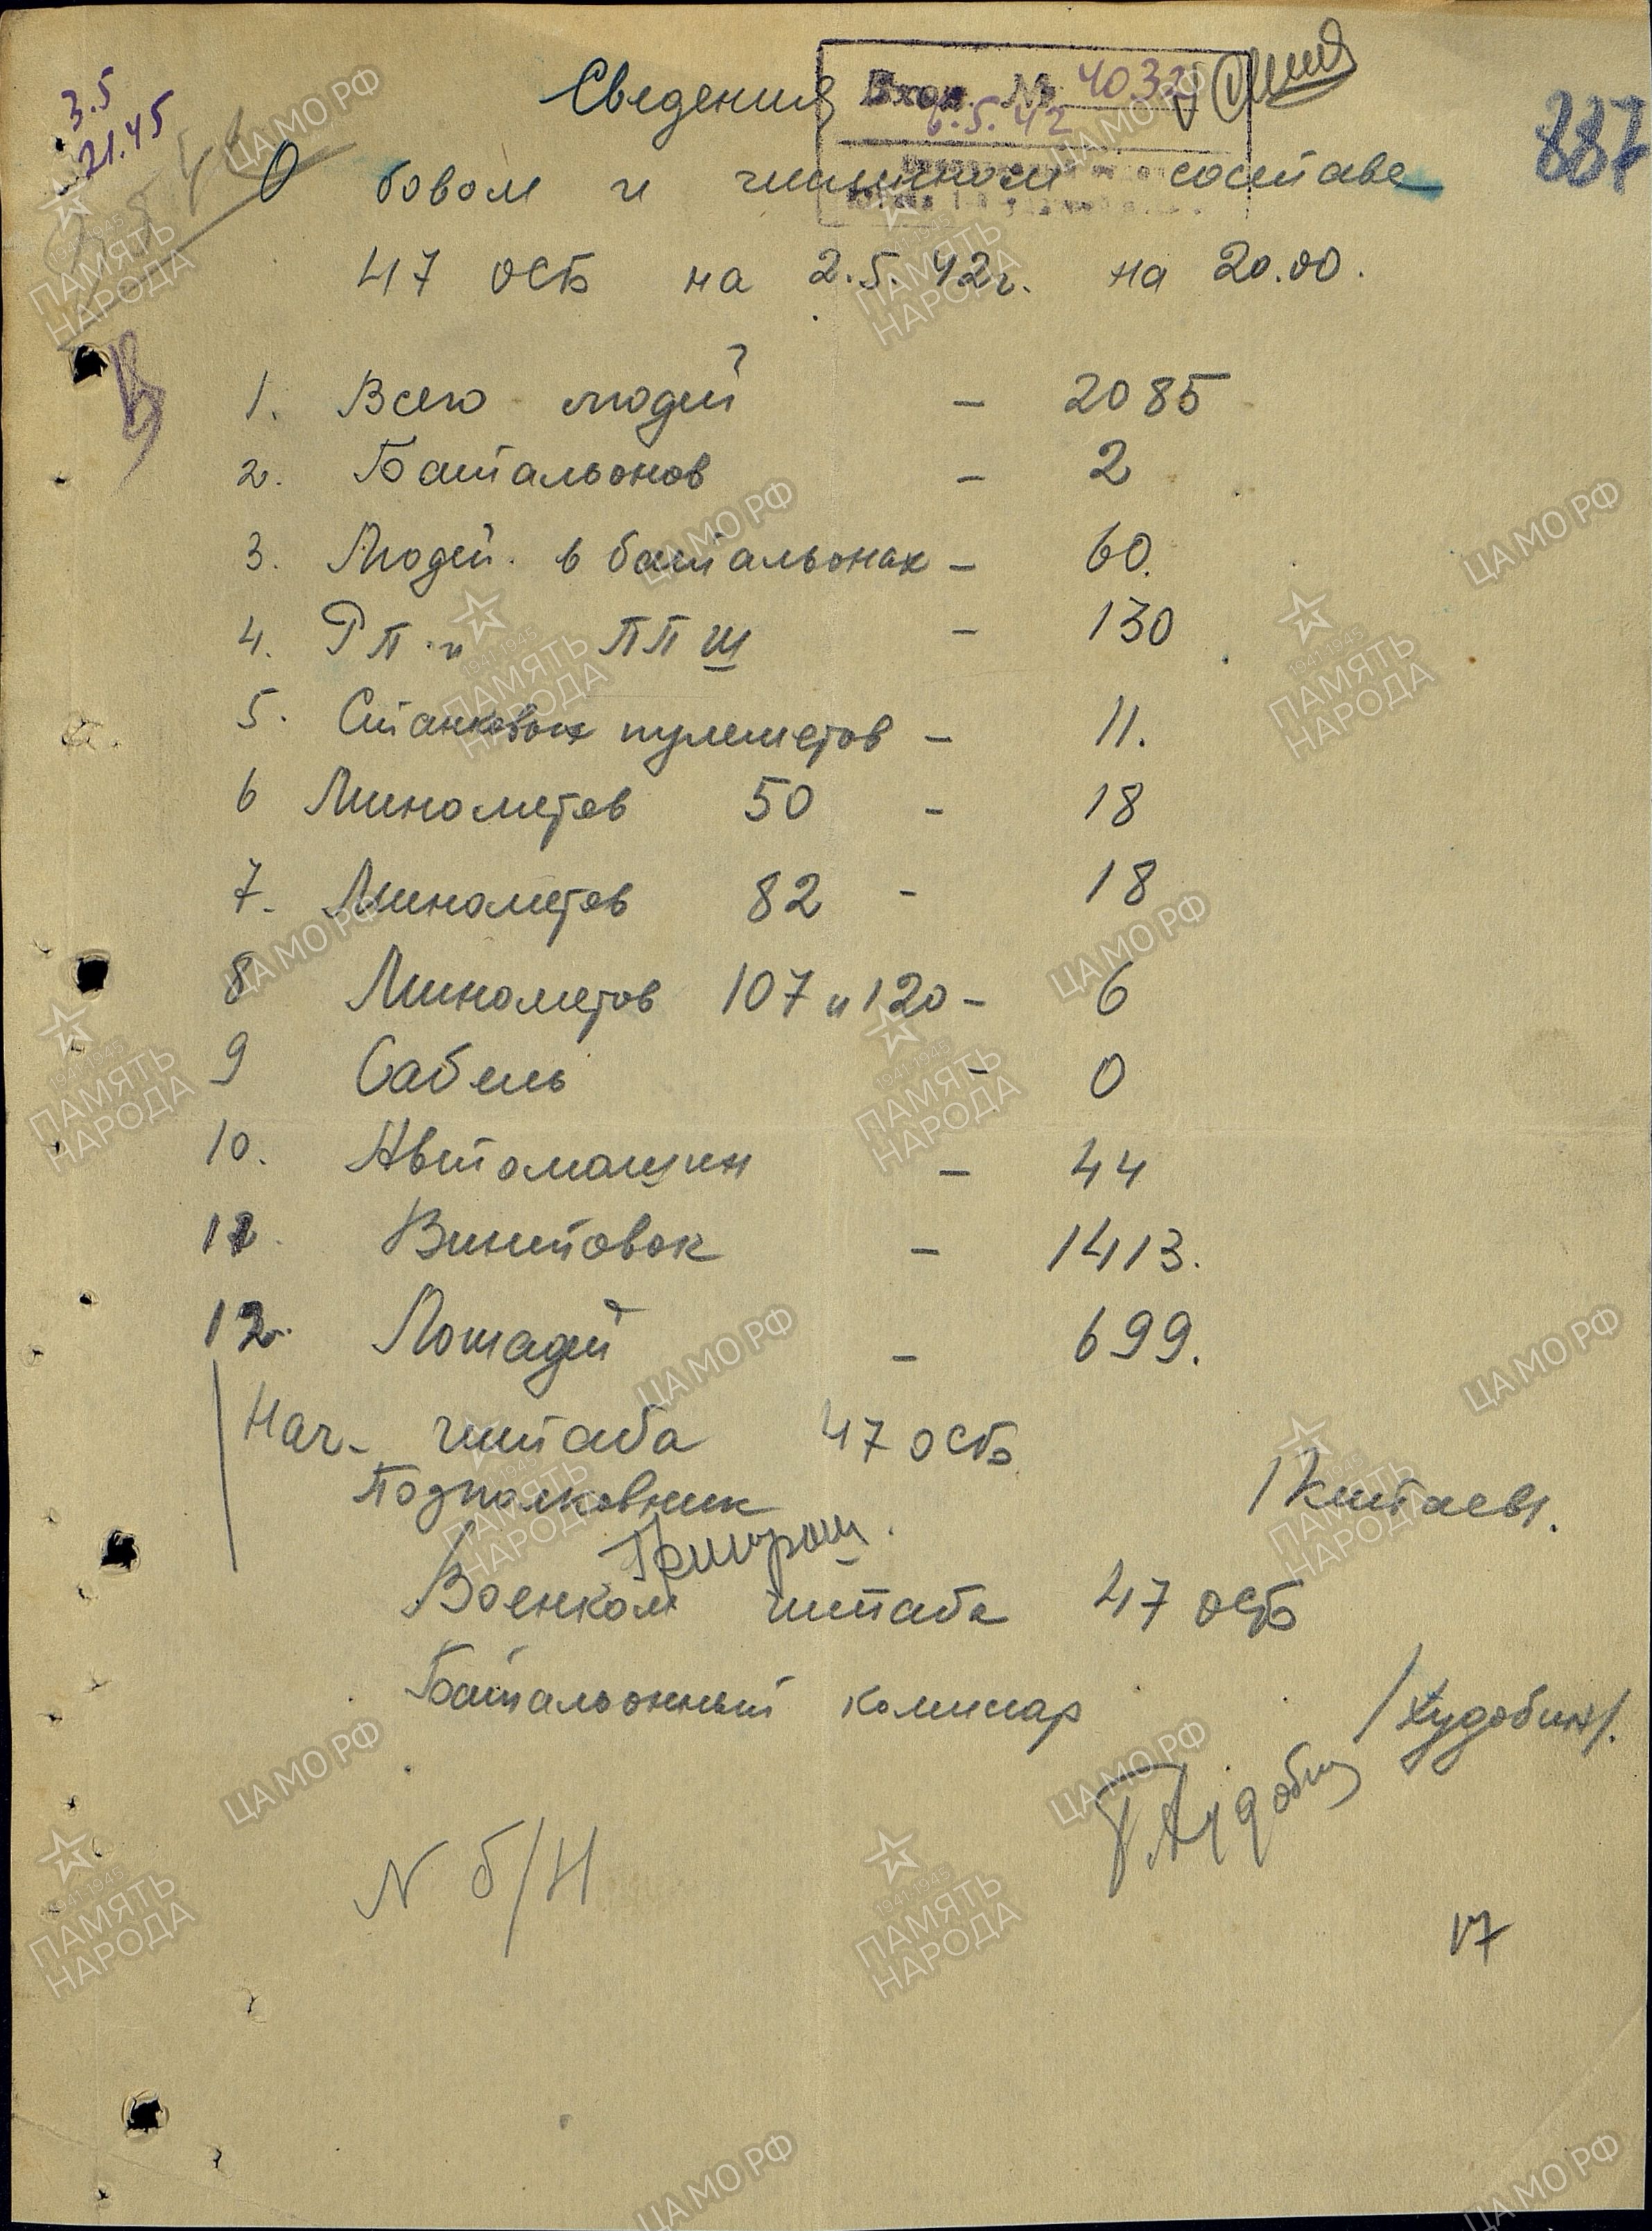 3.5
21.45
Сведения
Вход. № 4032
6.5.42
887
О бовом и численном составе
47 ОСБ на 2.5.42г. на 20.00.
1. Всего людей - 2085
2. Батальонов - 2
3. Людей в батальонах - 60.
4. РП и ППШ - 130
5. Станковых пулеметов - 11.
6 Минометов 50 - 18
7. Минометов 82 - 18
8 Минометов 107 и 120 - 6
9 Сабель - 0
10. Автомашин - 44
11. Винтовок - 1413.
12. Лошадей - 699.
Нач. штаба 47 осб
Подполковник /Китаев/.
Военком штаба 47 осб
Батальонный комиссар /Худобин/.
Худобин
N б/н
17
ЦАМО РФ
1941-1945
ПАМЯТЬ
НАРОДА